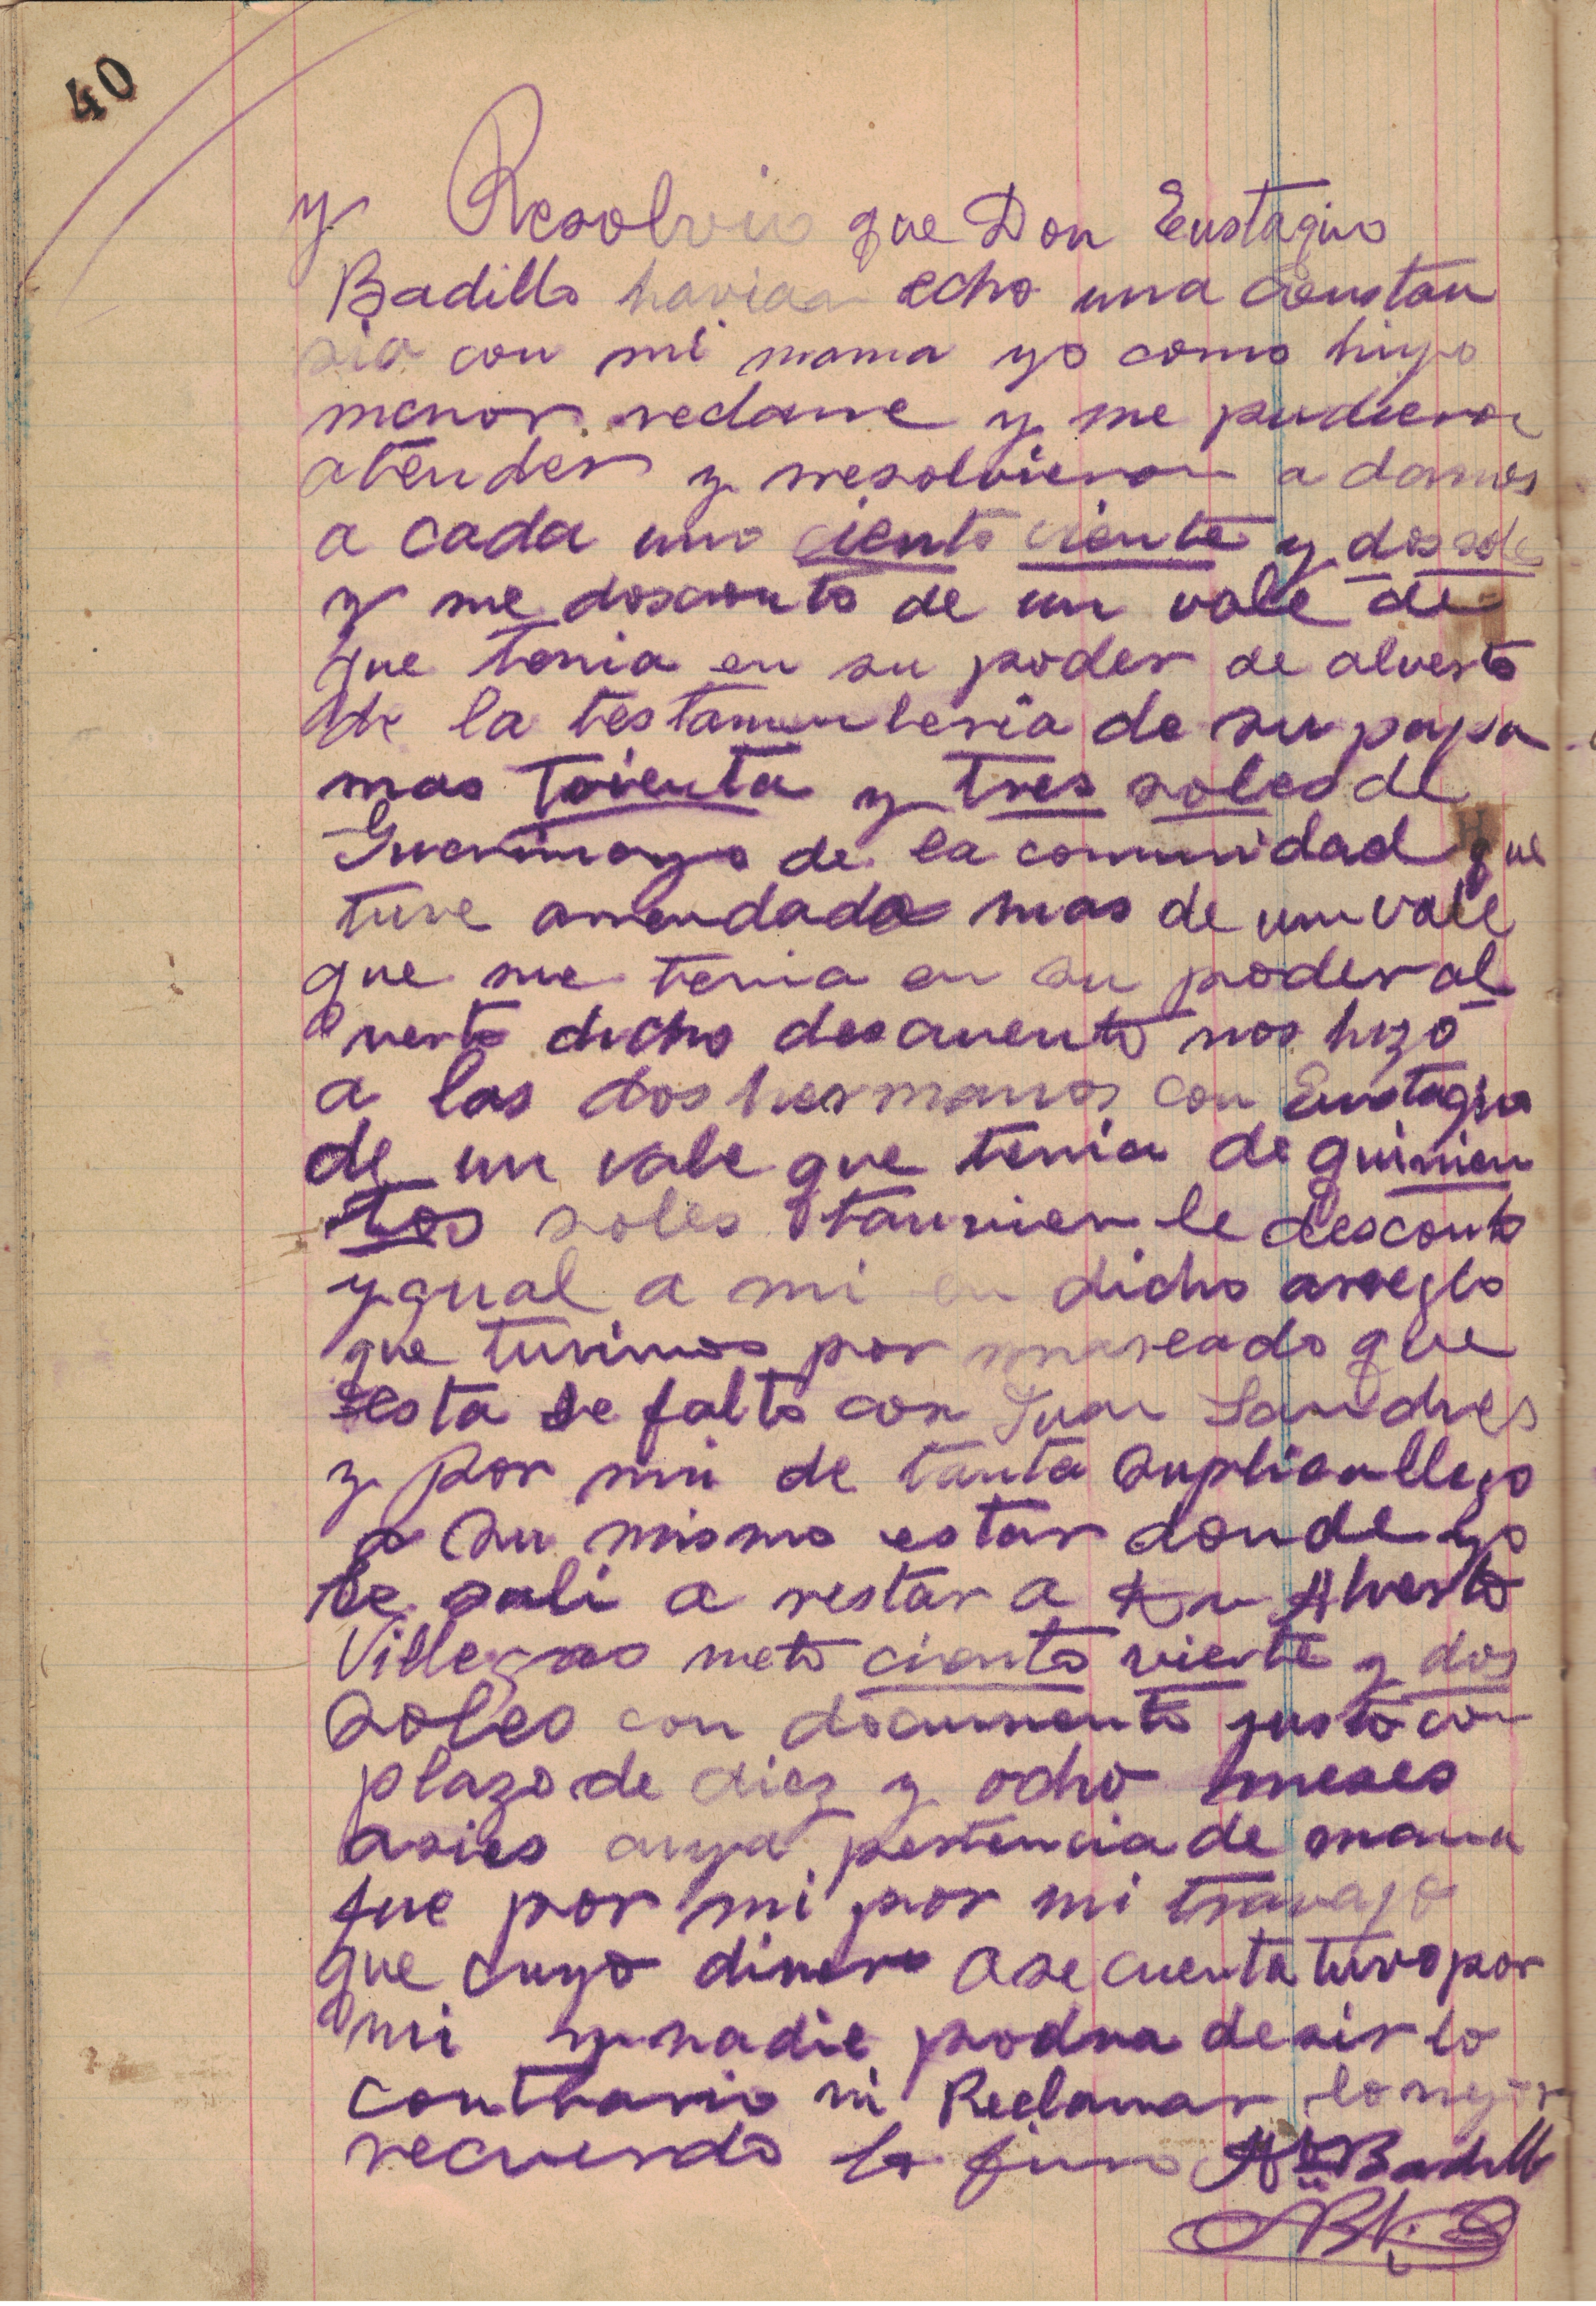 40
y Resolvio que Don Eustaqio
Badillo havian echo una Constan
sia con mi mama yo como hiyo
menor reclame y me pudieron
atender y rresolvieron a darnos
a cada uno ciento viente y dos sole
y me descento de un vale de
que tenia en su poder de alverto
de la testamenteria de su papa
mas trienta y tres soles de
de la comunidad que
tuve arrendado mas de un vale
que me tenia en su poder al
verto dicho descuento nos hizo
a los dos hermanos con Eustaqio
de un vale que tenia de quinien
tos soles tanvien le desconto
ygual a mi en dicho arreglo
que tuvimos por que
esta se falto con Juan Landres
y por mi de tanta suplica llego
a su mismo estar donde yo
le sali a restar a Dn Alverto
Villegas neto ciento viente y dos
Soles con documento justo con
plazo de diez y ocho meses
asies cuya pertencia de mama
fue por mi por mi travajo
que cuyo dinero ase cuenta tuvo por
mi y nadie podra desir lo
contrario ni Reclamar lo mejor
recuerdo lo firmo Ato Badillo